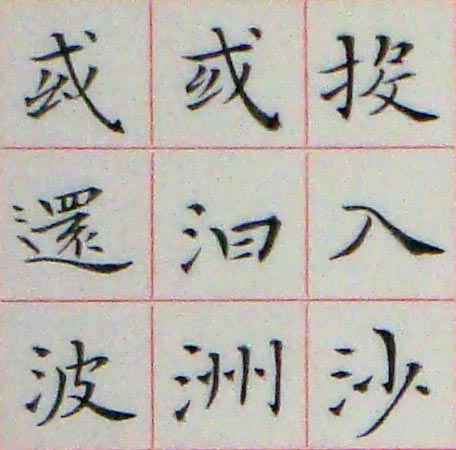 投入沙
或汩洲
或還波